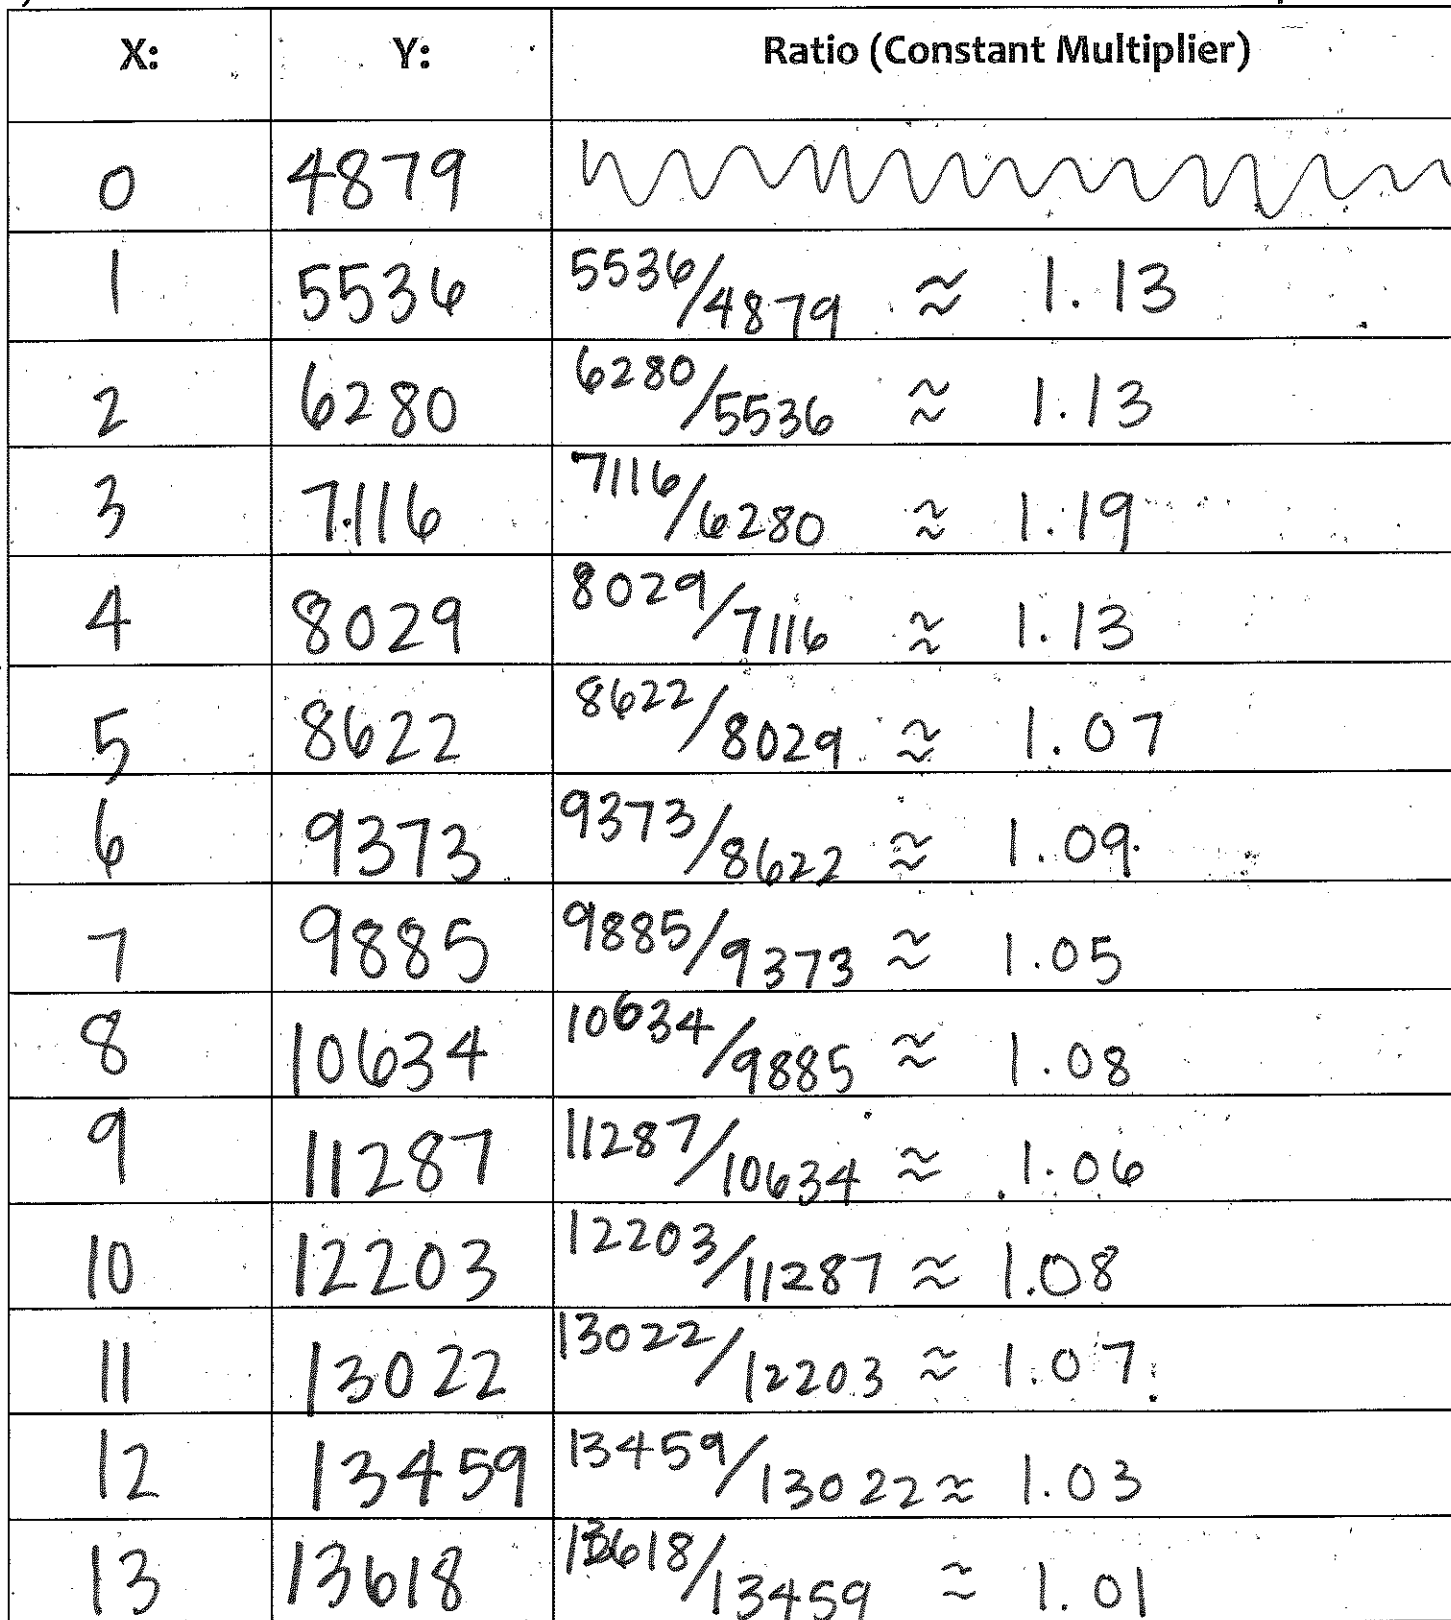 X: Y: Ratio (Constant Multiplier)
0 4879
1 5536 5536/4879 ≈ 1.13
2 6280 6280/5536 ≈ 1.13
3 7116 7116/6280 ≈ 1.19
4 8029 8029/7116 ≈ 1.13
5 8622 8622/8029 ≈ 1.07
6 9373 9373/8622 ≈ 1.09
7 9885 9885/9373 ≈ 1.05
8 10634 10634/9885 ≈ 1.08
9 11287 11287/10634 ≈ 1.06
10 12203 12203/11287 ≈ 1.08
11 13022 13022/12203 ≈ 1.07
12 13459 13459/13022 ≈ 1.03
13 13618 13618/13459 ≈ 1.01